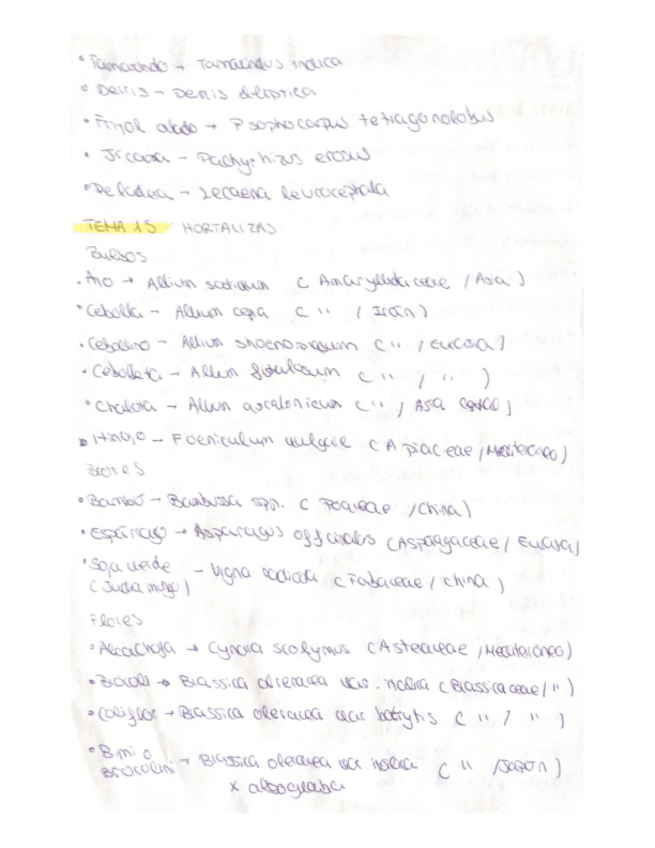 • Tamarindo → Tamarindus indica
• Derris → Derris elliptica
• Frijol alado → Psophocarpus tetragonolobus
• Jicama → Pachyrhizus erosus
• Peladera → Lecaena leucocephala
TEMA 15 HORTALIZAS
Bulbos
• Ajo → Allium sativum (Amaryllidaceae / Asia)
• Cebolla → Allium cepa ( " / Irán)
• Cebollino → Allium shoenoprasum ( " / Eurasia)
• Cebolleta → Allium fistulosum ( " / " )
• Chalota → Allium ascalonicum ( " / Asia )
• Hinojo → Foeniculum vulgare (Apiaceae / Mediterráneo)
Brotes
• Bambú → Bambussa spp. (Poaceae / China)
• Espárrago → Asparagus officinalis (Asparagaceae / Eurasia)
• Soja verde → Vigna radiata (Fabaceae / China)
(Judia mungo)
Flores
• Alcachofa → Cynara scolymus (Asteraceae / Mediterráneo)
• Brócoli → Brassica oleracea var. italica (Brassicaceae / " )
• Coliflor → Brassica oleracea var botrytis ( " / " )
• Bimi o → Brassica oleracea var. italica ( " / Japón)
Brocolini x alboglabra